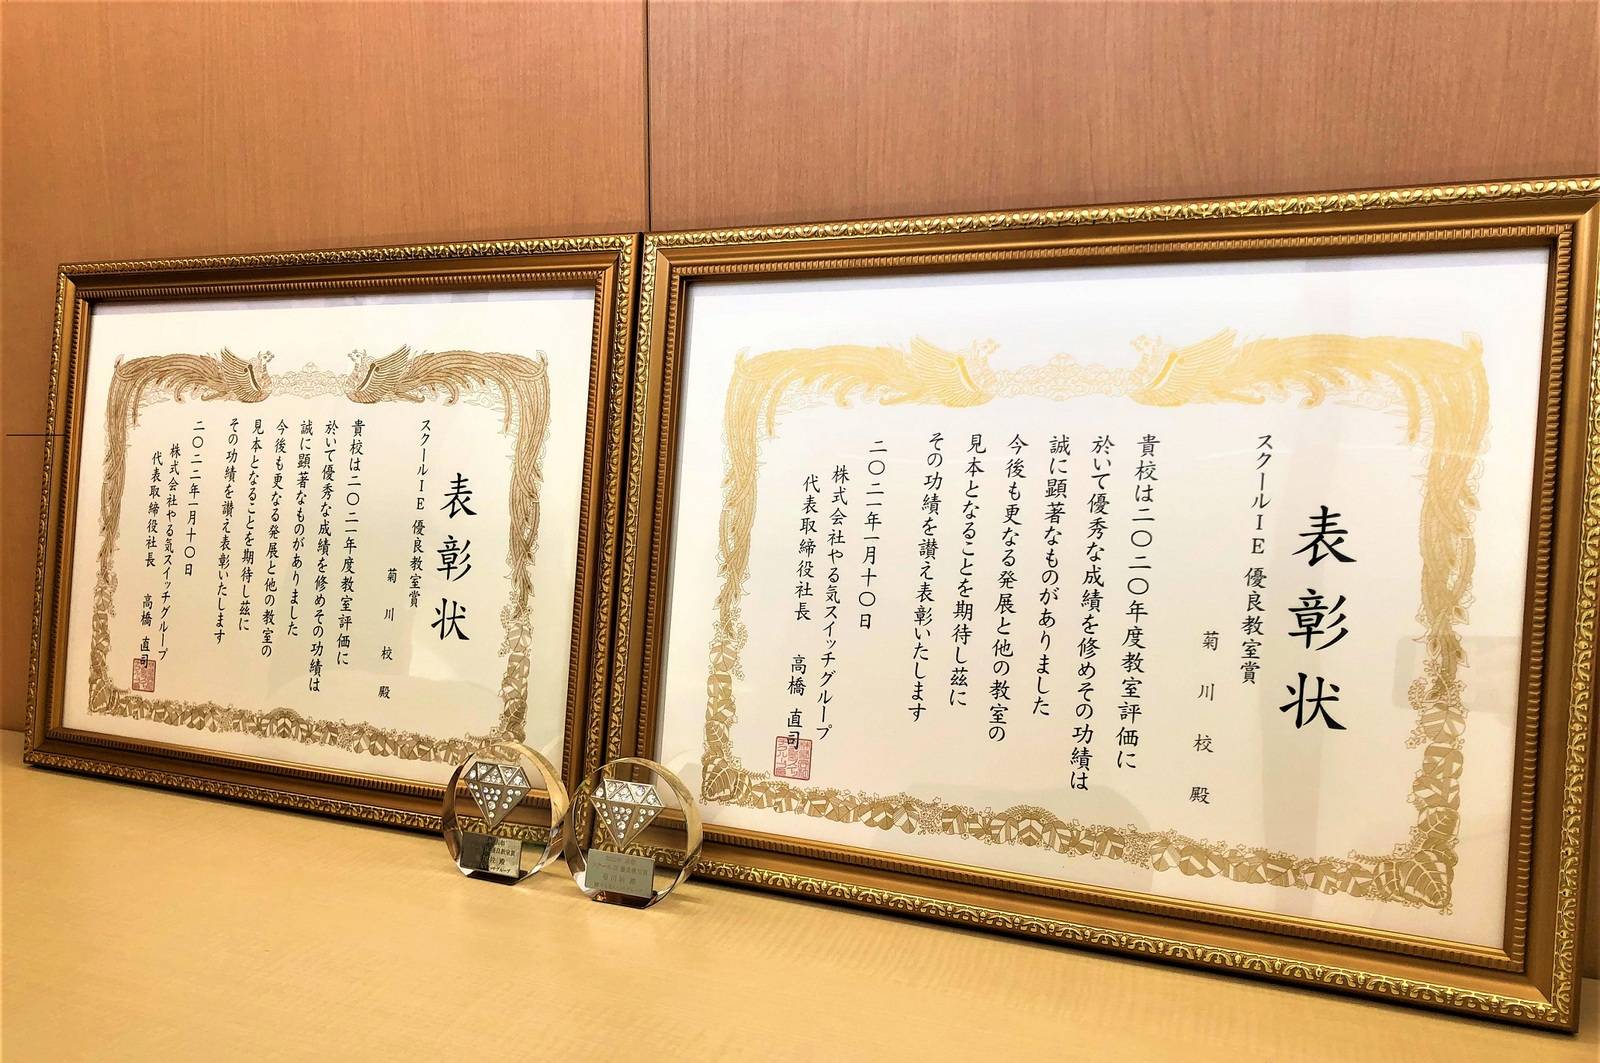 表彰状
スクールIE 優良教室賞
菊川校殿
貴校は二〇二一年度教室評価に
於いて優秀な成績を修めその功績は
誠に顕著なものがありました
今後も更なる発展と他の教室の
見本となることを期待し茲に
その功績を讃え表彰いたします
二〇二二年一月十〇日
株式会社やる気スイッチグループ
代表取締役社長 高橋 直司
表彰状
スクールIE 優良教室賞
菊川校殿
貴校は二〇二〇年度教室評価に
於いて優秀な成績を修めその功績は
誠に顕著なものがありました
今後も更なる発展と他の教室の
見本となることを期待し茲に
その功績を讃え表彰いたします
二〇二一年一月十〇日
株式会社やる気スイッチグループ
代表取締役社長 高橋 直司